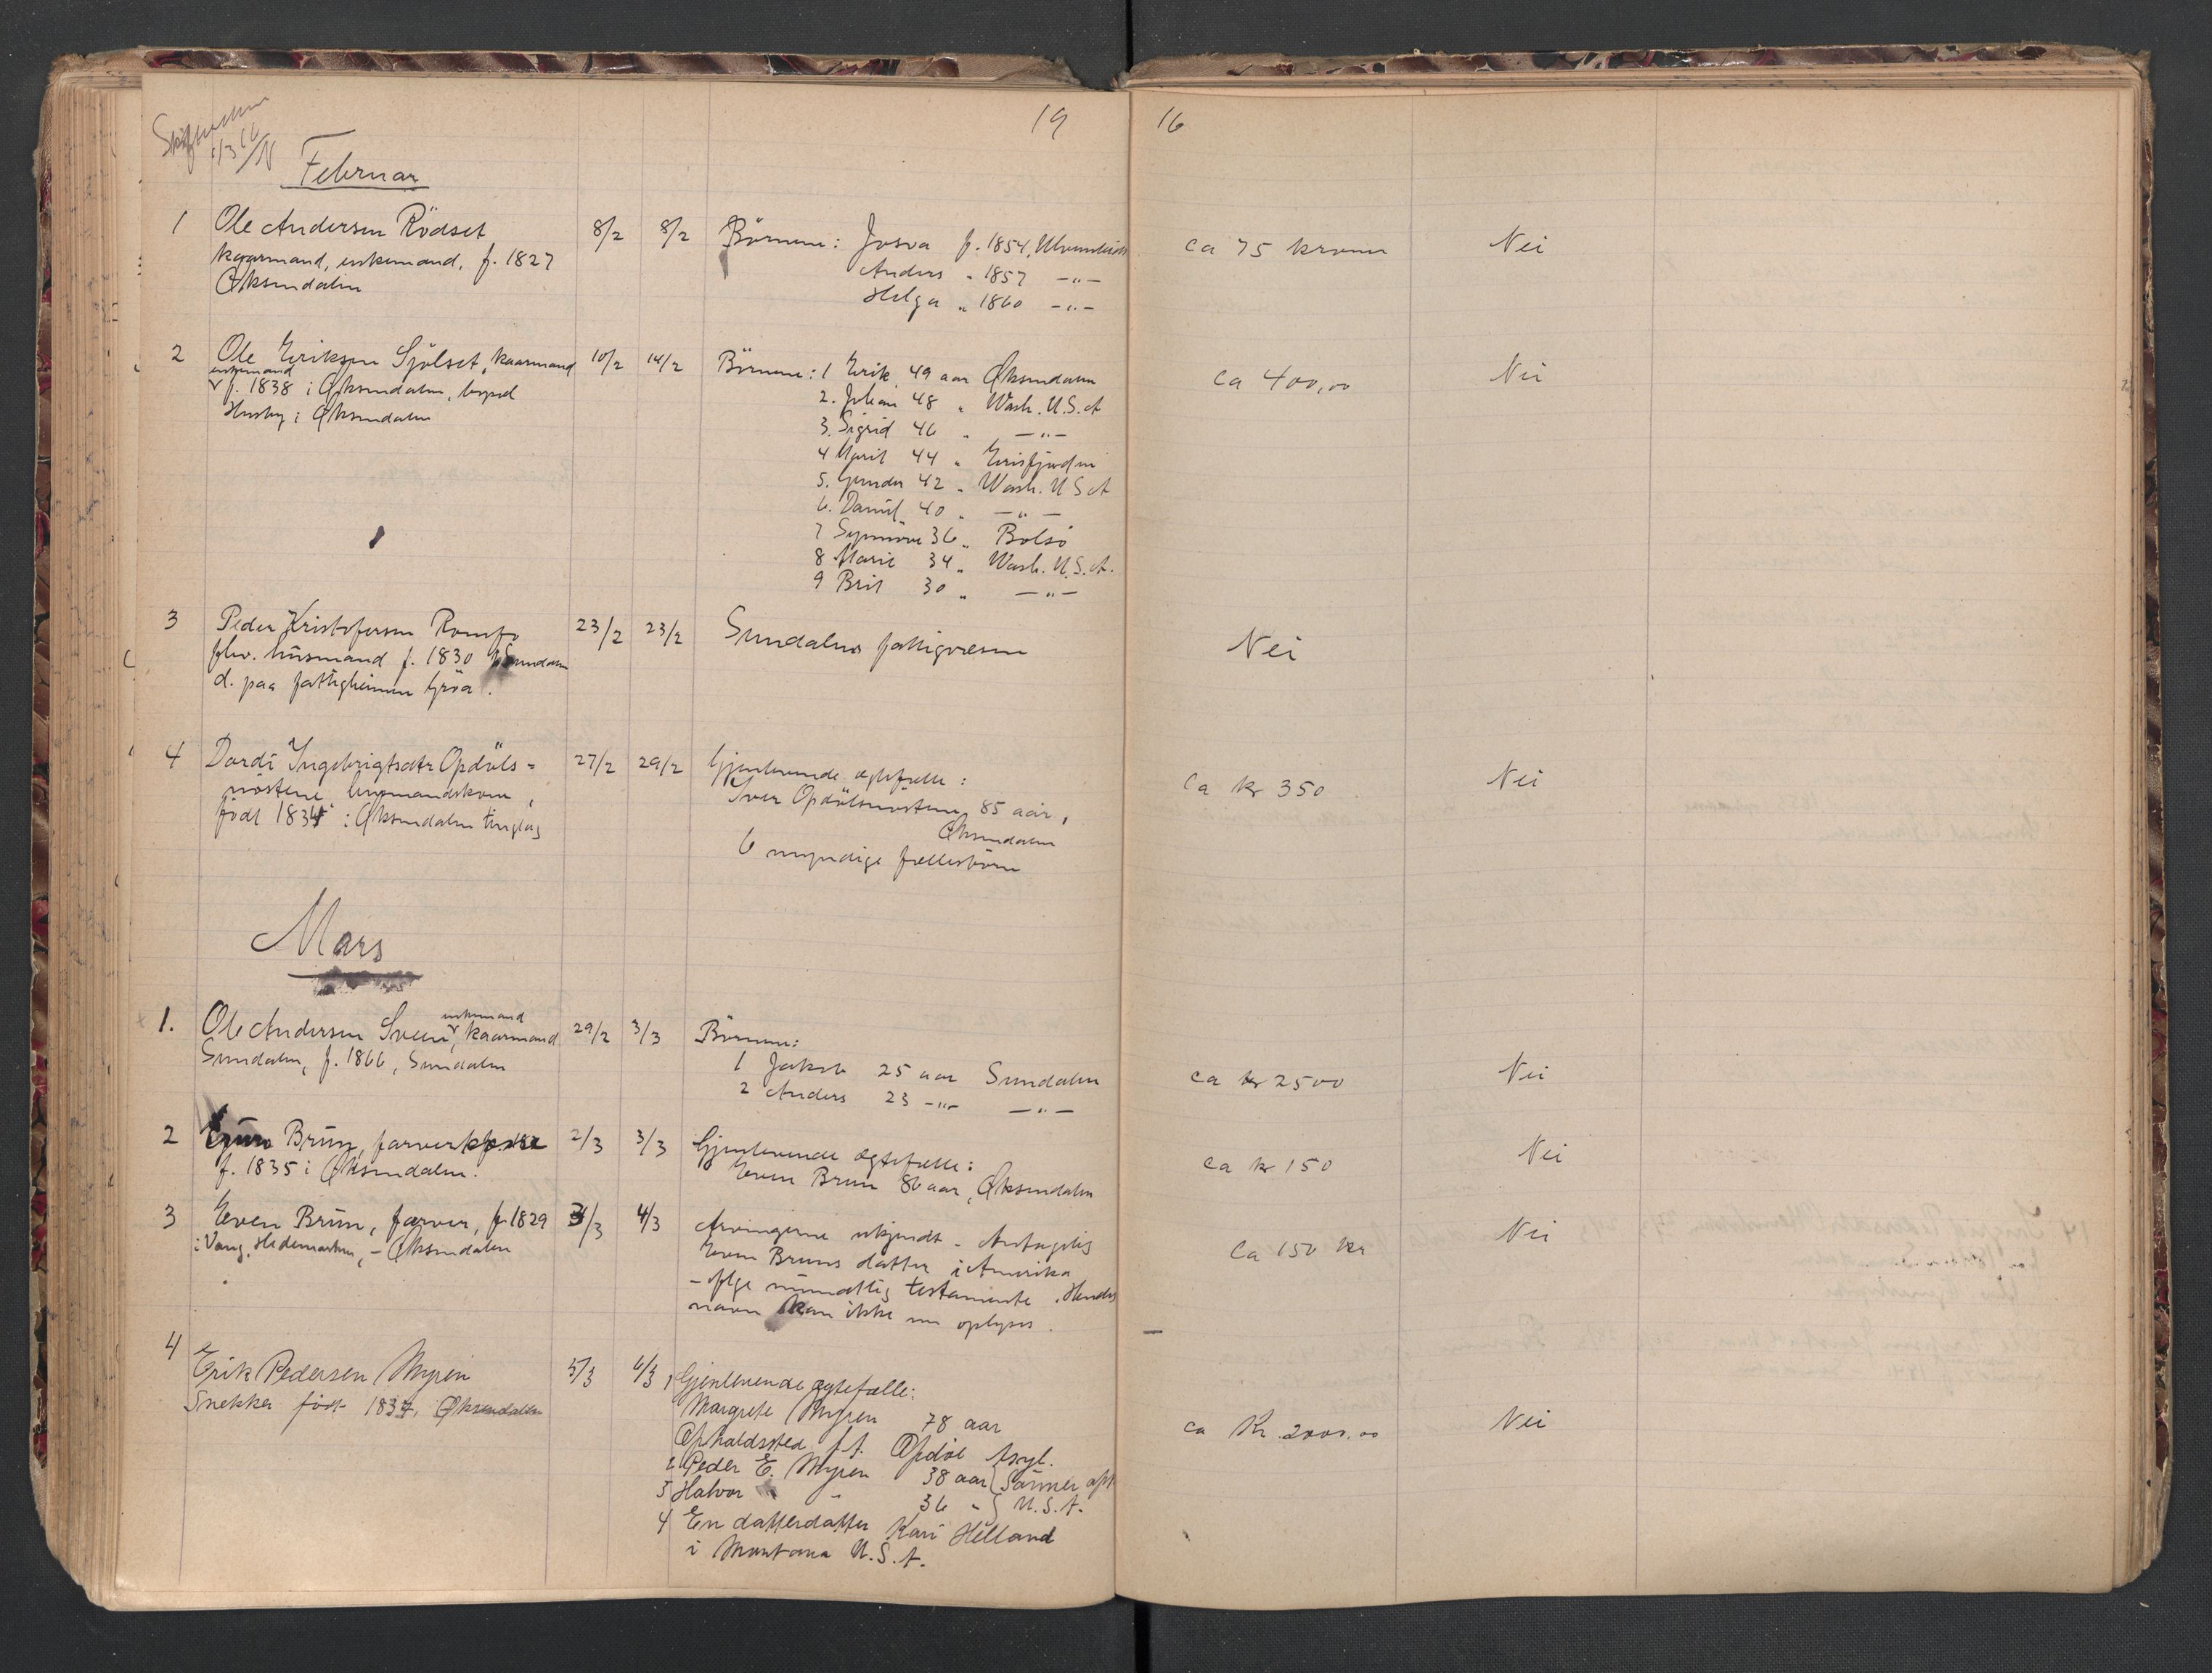 19 16
1/3 16
Februar
1 Ole Andersen Rödset 8/2 8/2 Börnene: Josva f. 1854, Ulvundeidet ca 75 kroner Nei
kaarmand, enkemand, f. 1827 Anders " 1857 -"-
Øksendalen Helga " 1860 -"-
2 Ole Eriksen Sjölset, kaarmand 10/2 14/2 Börnene: 1 Erik 49 aar Øksendalen ca 400,00 Nei
enkemand
f. 1838 i Øksendalen, bopæl 2. Johan 48 " Wash. U.S.A
Husby i Øksendalen 3. Sigrid 46 " -"-
4 Marit 44 " Eirisfjorden
5. Gunder 42 " Wash. U S A
6. Daniel 40 " -"-
7 Synnöve 36 " Bolsö
8 Marie 34 " Wash. U.S.A.
9 Brit 30 " -"-
3 Peder Kristofersen Romfo 23/2 23/2 Sundalens fattigvæsen Nei
fhv. husmand f. 1830 i Sundalen
d. paa fattigheimen Gröa.
4 Dordi Ingebrigtsdtr Opdöls= 27/2 29/2 Gjenlevende ægtefælle: ca kr 350 Nei
nöstene, husmandskone, Iver Opdölsnöstene, 85 aar,
födt 1834 i Øksendalen tinglag Øksendalen
6 myndige fællesbörn
Mars
1. Ole Andersen Sveen, kaarmand 29/2 3/3 Börnene:
enkemand
Sundalen, f. 1866, Sundalen 1 Jakob 25 aar Sundalen ca kr 2500 Nei
2 Anders 23 -"- -"-
2 Guro Brun, farver 2/3 3/3 Gjenlevende ægtefælle: ca kr 150 Nei
f. 1835 i Øksendalen. Even Brun 86 aar, Øksendalen
3 Even Brun, farver, f. 1829 3/3 4/3 Arvingerne ukjendt - Antagelig Ca 150 kr Nei
i Vang, Hedemarken, - Øksendalen Even Bruns datter i Amerika
- ifölge mundtlig testamente. Hendes
navn kan ikke nu oplyses.
4 Erik Pedersen Myren 5/3 6/3 1 Gjenlevende ægtefælle:
Snekker födt 1837, Øksendalen Margrete Myren 78 aar ca Kr. 2000.00 Nei
Opholdssted f.t. Opdöl Asyl.
2 Peder E. Myren 38 aar } Sönner
3 Halvor " 36 " } U.S.A.
4 En datterdatter Kari Helland
i Montana U.S.A.